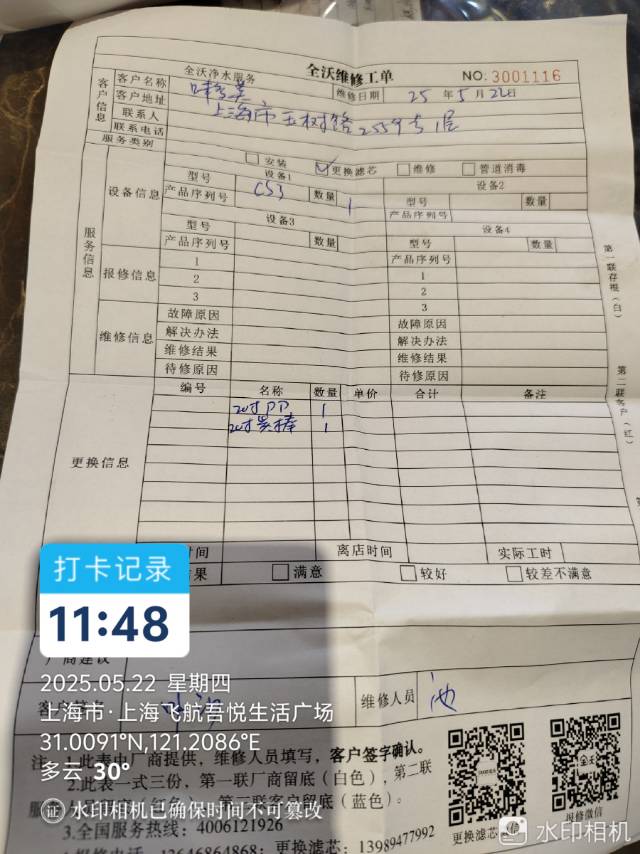 全沃净水服务 全沃维修工单 NO: 3001116
客户信息
客户名称
维修日期 25年5月22日
客户地址 上海市玉树路2559号1层
联系人
联系电话
服务类别 安装 更换滤芯 维修 管道消毒
服务信息
设备信息
设备1 设备2
型号 CS3 数量 1 型号 数量
产品序列号 产品序列号
设备3 设备4
型号 数量 型号 数量
产品序列号 产品序列号
报修信息
1 1
2 2
3 3
维修信息
故障原因 故障原因
解决办法 解决办法
维修结果 维修结果
待修原因 待修原因
更换信息
编号 名称 数量 单价 合计 备注
20寸PP 1
20寸炭棒 1
时间 离店时间 实际工时
果 满意 较好 较差不满意
厂商建议
维修人员
第一联存根(白)
第二联客户(红)
打卡记录
11:48
2025.05.22 星期四
上海市·上海飞航吾悦生活广场
31.0091°N,121.2086°E
多云 30°
水印相机已确保时间不可篡改
注 1.此表由厂商提供，维修人员填写，客户签字确认。
2.此表一式三份，第一联厂商留底（白色），第二联
客户留底（蓝色）。
3.全国服务热线：4006121926
报修电话：12646864868；更换滤芯：13989477992
更换滤芯微信
报修微信
水印相机